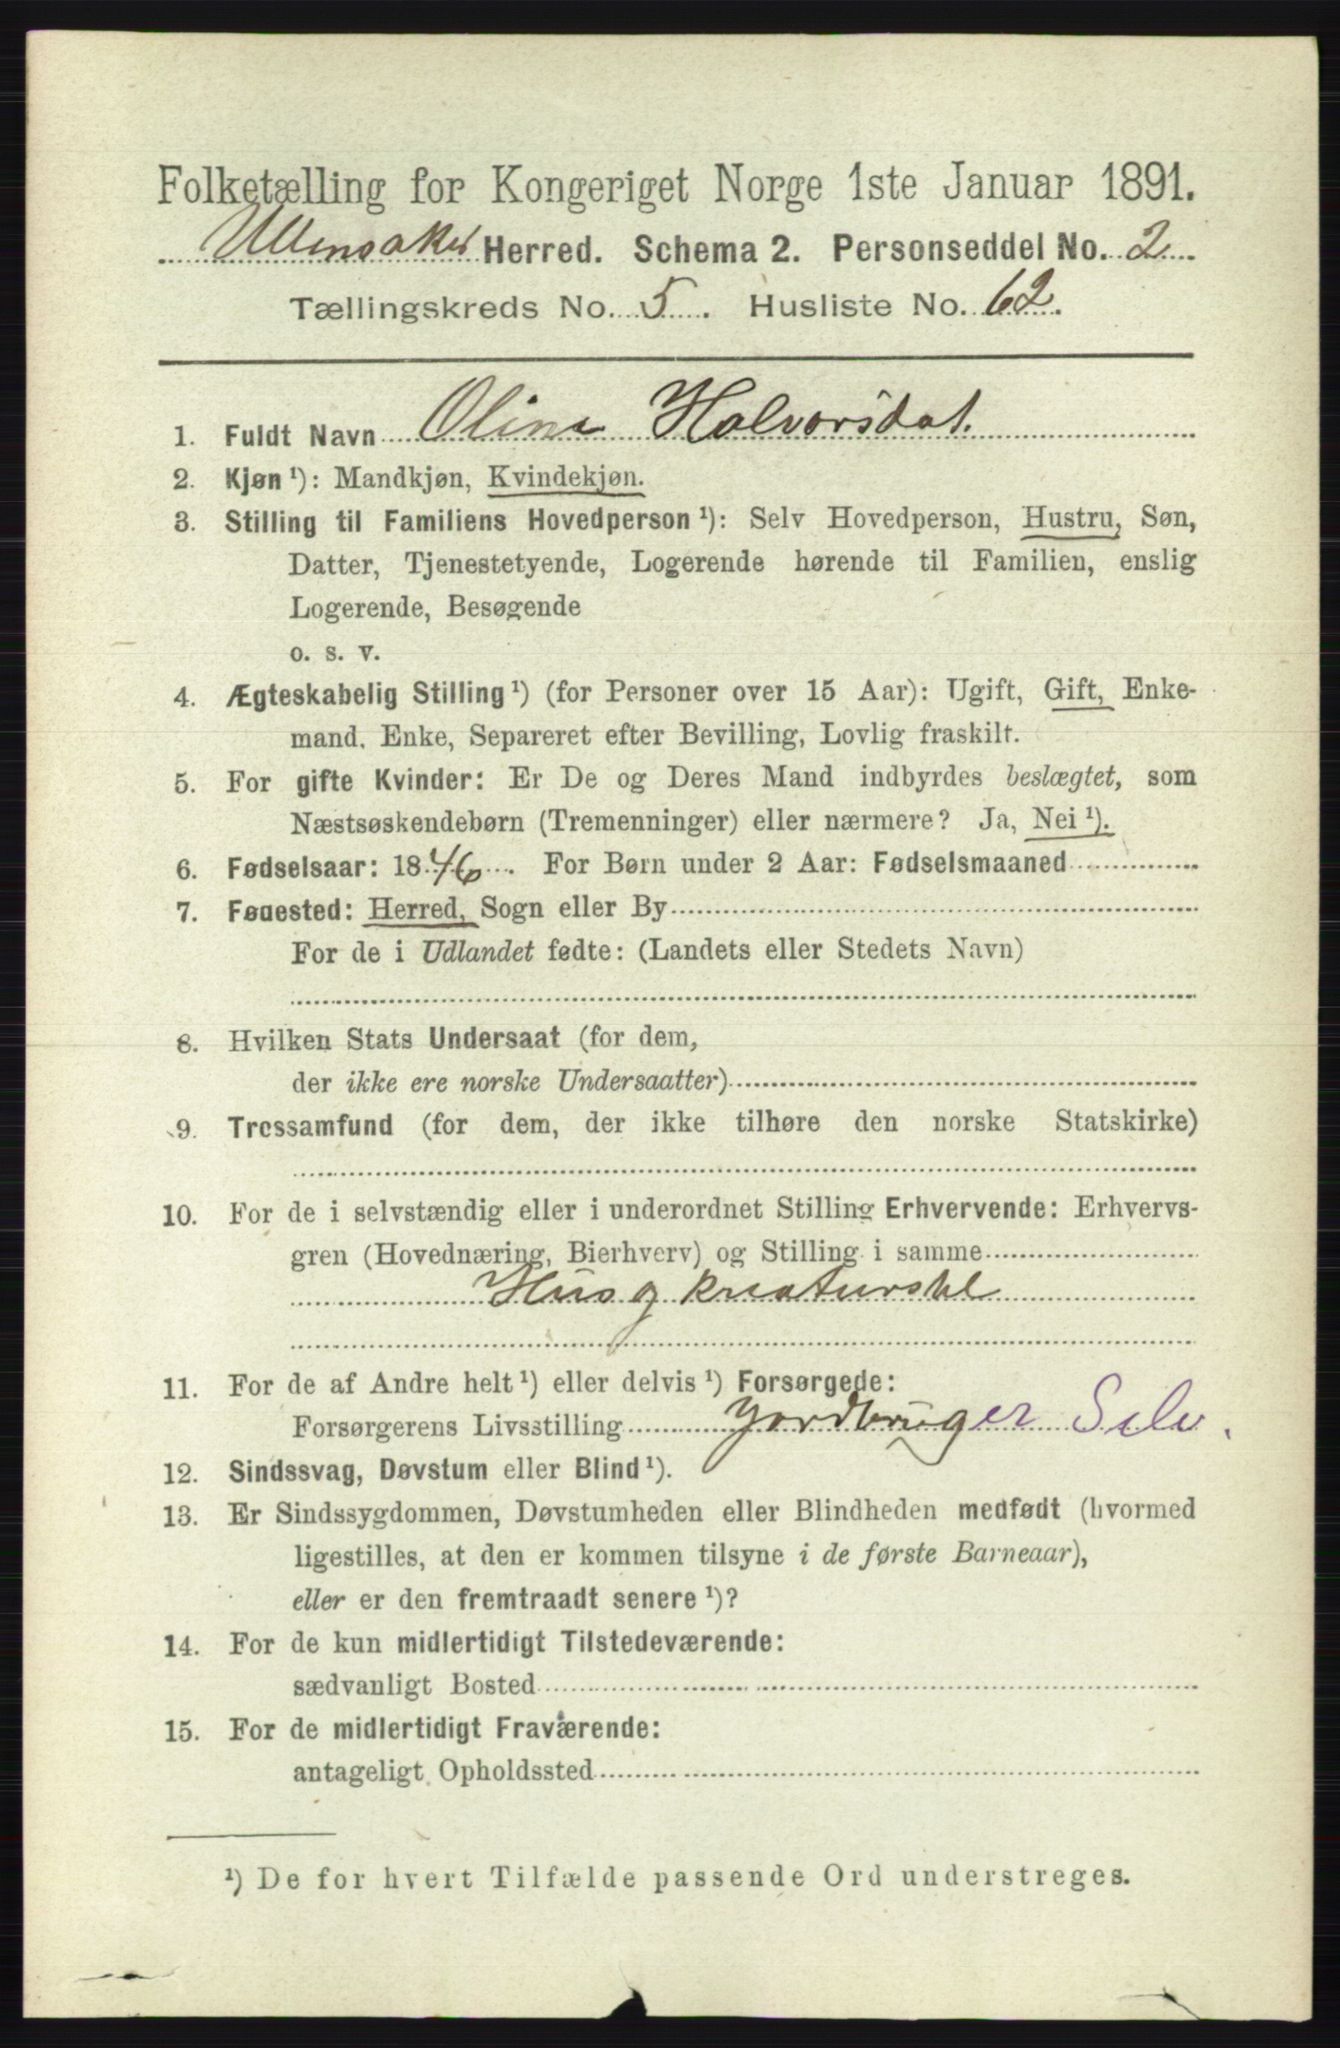 Folketælling for Kongeriget Norge 1ste Januar 1891.
Ullensaker Herred. Schema 2. Personseddel No. 2
Tællingskreds No. 5. Husliste No. 62.
1. Fuldt Navn Oline Halvorsdat.
2. Kjøn ¹): Mandkjøn, Kvindekjøn.
3. Stilling til Familiens Hovedperson ¹): Selv Hovedperson, Hustru, Søn,
Datter, Tjenestetyende, Logerende hørende til Familien, enslig
Logerende, Besøgende
o. s. v.
4. Ægteskabelig Stilling ¹) (for Personer over 15 Aar): Ugift, Gift, Enke-
mand, Enke, Separeret efter Bevilling, Lovlig fraskilt.
5. For gifte Kvinder: Er De og Deres Mand indbyrdes beslægtet, som
Næstsøskendebørn (Tremenninger) eller nærmere? Ja, Nei ¹).
6. Fødselsaar: 1846. For Børn under 2 Aar: Fødselsmaaned
7. Føuested: Herred, Sogn eller By
For de i Udlandet fødte: (Landets eller Stedets Navn)
8. Hvilken Stats Undersaat (for dem,
der ikke ere norske Undersaatter)
9. Trossamfund (for dem, der ikke tilhøre den norske Statskirke)
10. For de i selvstændig eller i underordnet Stilling Erhvervende: Erhvervs-
gren (Hovednæring, Bierhverv) og Stilling i samme
Hus og kreaturstel
11. For de af Andre helt ¹) eller delvis ¹) Forsørgede:
Forsørgerens Livsstilling Jordbruger Selv.
12. Sindssvag, Døvstum eller Blind ¹).
13. Er Sindssygdommen, Døvstumheden eller Blindheden medfødt (hvormed
ligestilles, at den er kommen tilsyne i de første Barneaar),
eller er den fremtraadt senere ¹)?
14. For de kun midlertidigt Tilstedeværende:
sædvanligt Bosted
15. For de midlertidigt Fraværende:
antageligt Opholdssted
¹) De for hvert Tilfælde passende Ord understreges.